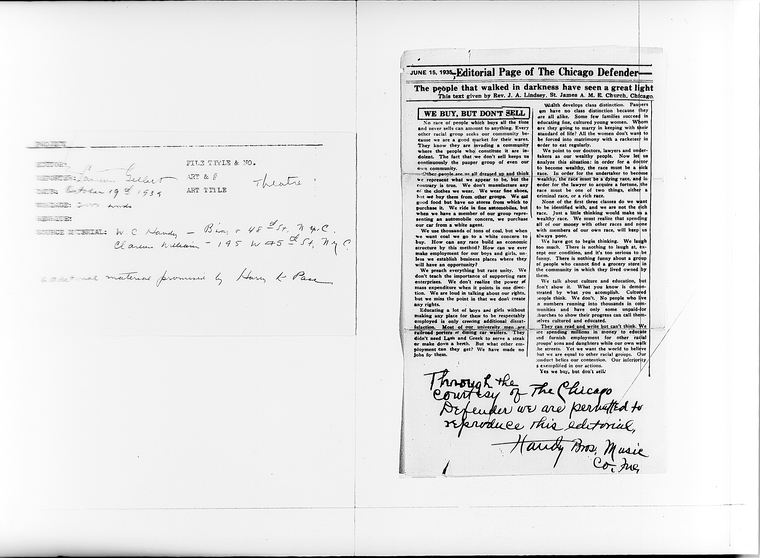 FILE TITLE & NO.
ART & P
ART TITLE Theatre
October 19th 1939
W. C Handy - Bros. 48th St. N.Y.C.
Clarence Williams - 145 W 45th St, N.Y.C.
material promised by Harry H. Pace
JUNE 15, 1935 Editorial Page of The Chicago Defender
The people that walked in darkness have seen a great light
This text given by Rev. J. A. Lindsey, St. James A. M. E. Church, Chicago.
WE BUY, BUT DON'T SELL
No race of people which buys all the time
and never sells can amount to anything. Every
other racial group seeks our community be-
cause we are a good market for their wares.
They know they are invading a community
where the people who constitute it are in-
dolent. The fact that we don't sell keeps us
continuously the pauper group of even our
own community.
Other people see us all dressed up and think
we represent what we appear to be, but the
contrary is true. We don't manufacture any
of the clothes we wear. We wear fine shoes,
but we buy them from other groups. We eat
good food but have no stores from which to
purchase it. We ride in fine automobiles, but
when we have a member of our group repre-
senting an automobile concern, we purchase
our car from a white agent.
We use thousands of tons of coal, but when
we want coal we go to a white concern to
buy. How can any race build an economic
structure by this method? How can we ever
make employment for our boys and girls, un-
less we establish business places where they
will have an opportunity?
We preach everything but race unity. We
don't teach the importance of supporting race
enterprises. We don't realize the power of
mass expenditure when it points in one direc-
tion. We are loud in talking about our rights,
but we miss the point in that we don't create
any rights.
Educating a lot of boys and girls without
making any place for them to be respectably
employed is only creating additional dissat-
isfaction. Most of our university men are
railroad porters or dining car waiters. They
didn't need Latin and Greek to serve a steak
or make down a berth. But what other em-
ployment can they get? We have made no
jobs for them.
Wealth develops class distinction. Paupers
can have no class distinction because they
are all alike. Some few families succeed in
educating fine, cultured young women. Whom
are they going to marry in keeping with their
standard of life? All the women don't want to
be forced into matrimony with a racketeer in
order to eat regularly.
We point to our doctors, lawyers and under-
takers as our wealthy people. Now let us
analyze this situation: in order for a doctor
to become wealthy, the race must be a sick
race. In order for the undertaker to become
wealthy, the race must be a dying race, and in
order for the lawyer to acquire a fortune, the
race must be one of two things, either a
criminal race, or a rich race.
None of the first three classes do we want
to be identified with, and we are not the rich
race. Just a little thinking would make us a
wealthy race. We must realize that spending
all of our money with other races and none
with members of our own race, will keep us
always poor.
We have got to begin thinking. We laugh
too much. There is nothing to laugh at, ex-
cept our condition, and it's too serious to be
funny. There is nothing funny about a group
of people who cannot find a grocery store in
the community in which they lived owned by
them.
We talk about culture and education, but
don't show it. What you know is demon-
strated by what you accomplish. Cultured
people think. We don't. No people who live
in numbers running into thousands in com-
munities and have only some unpaid-for
churches to show their progress can call them-
selves cultured and educated.
They can read and write but can't think. We
are spending millions in money to educate
and furnish employment for other racial
groups' sons and daughters while our own walk
the streets. Yet we want the world to believe
that we are equal to other racial groups. Our
conduct belies our contention. Our inferiority
is exemplified in our actions.
Yes we buy, but don't sell!
Through the
courtesy of The Chicago
Defender we are permitted to
reproduce this editorial,
Handy Bros. Music
Co., Inc.